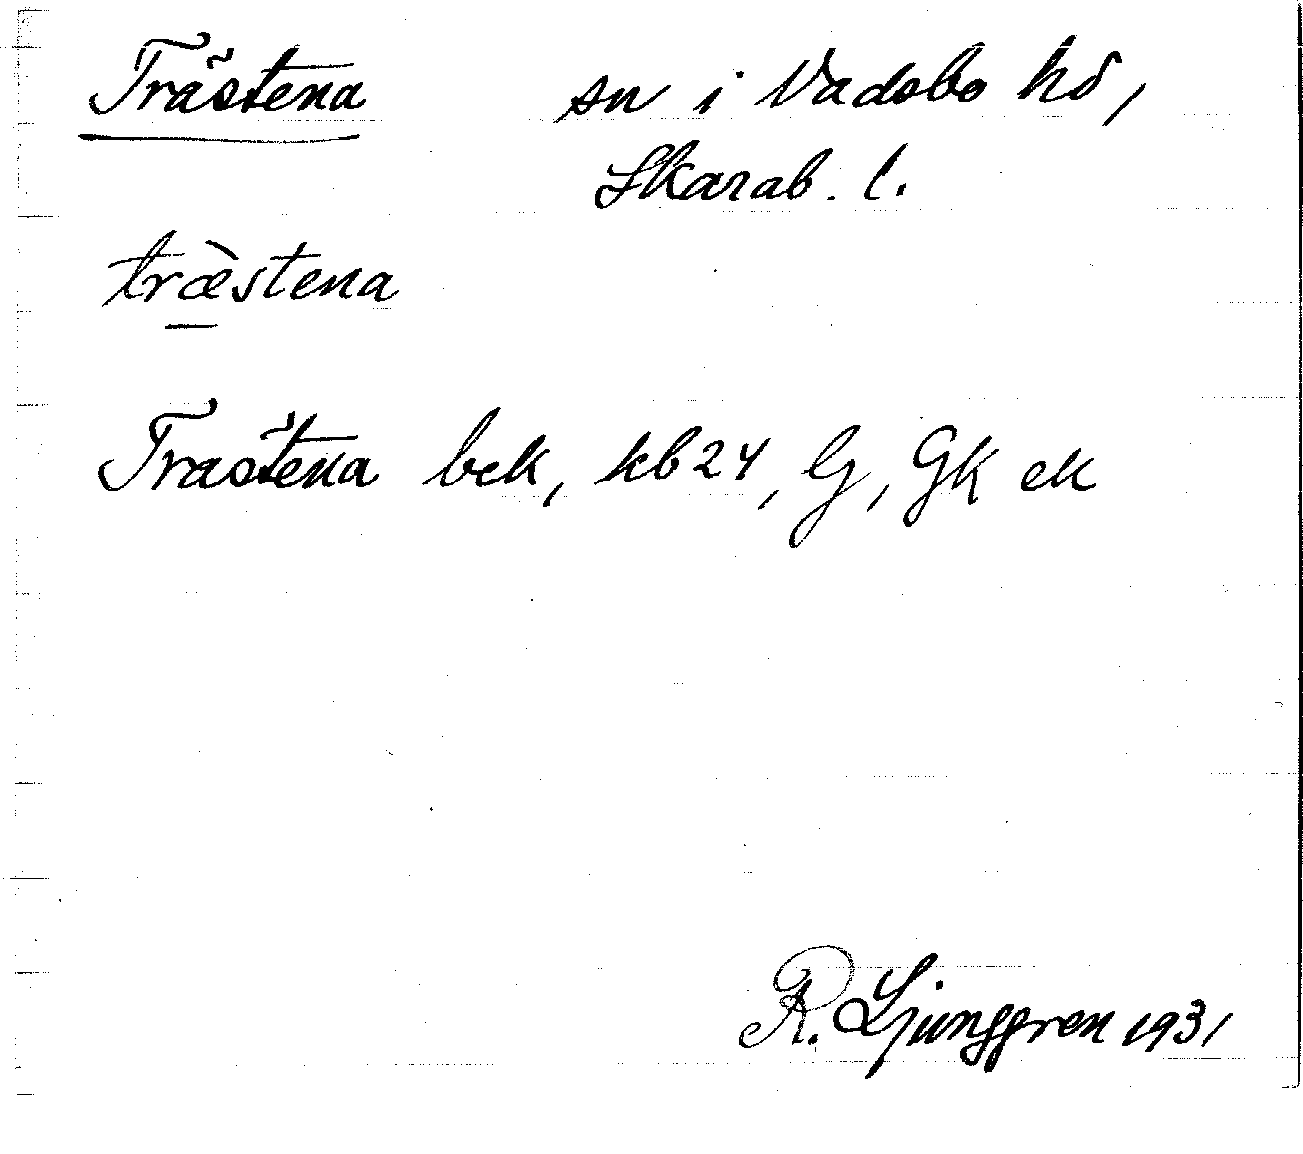 Trästena sn i Vadsbo hd,
Skarab. l.
træ̀stena
Trästena bek, kb 24, G, GK ek
R. Ljunggren 1931